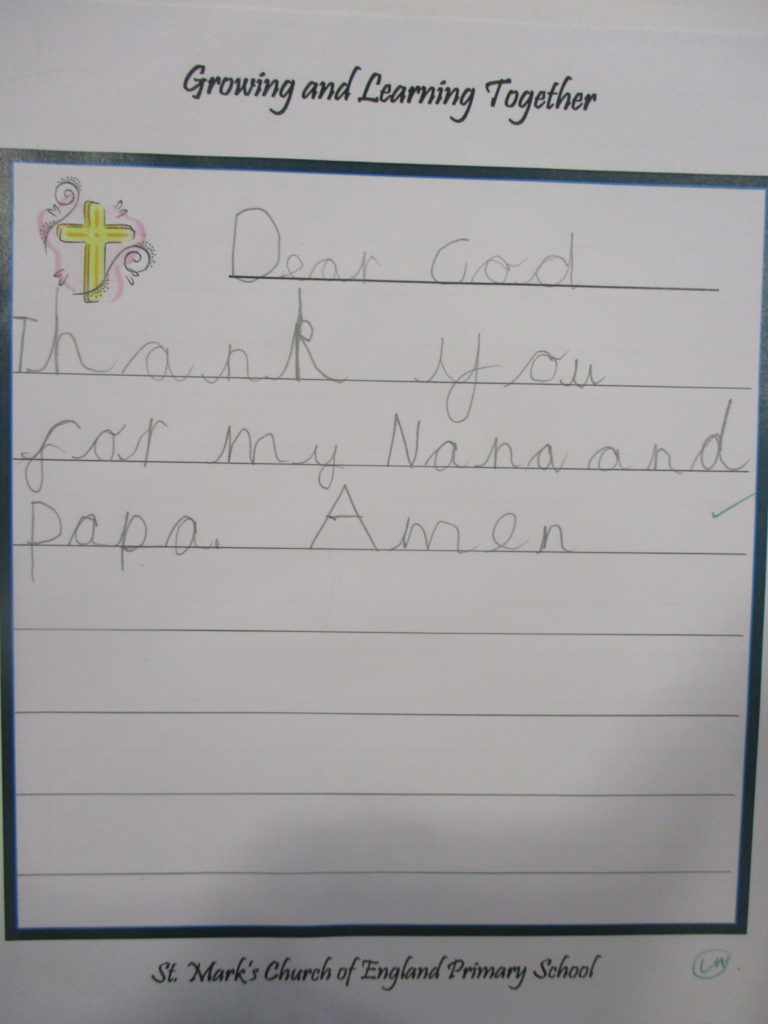 Growing and Learning Together
Dear God
Thank you
for my Nana and
papa. Amen
St. Mark's Church of England Primary School